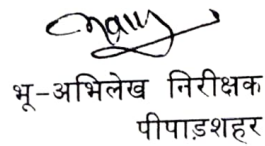 भू-अभिलेख निरीक्षक
पीपाड़शहर